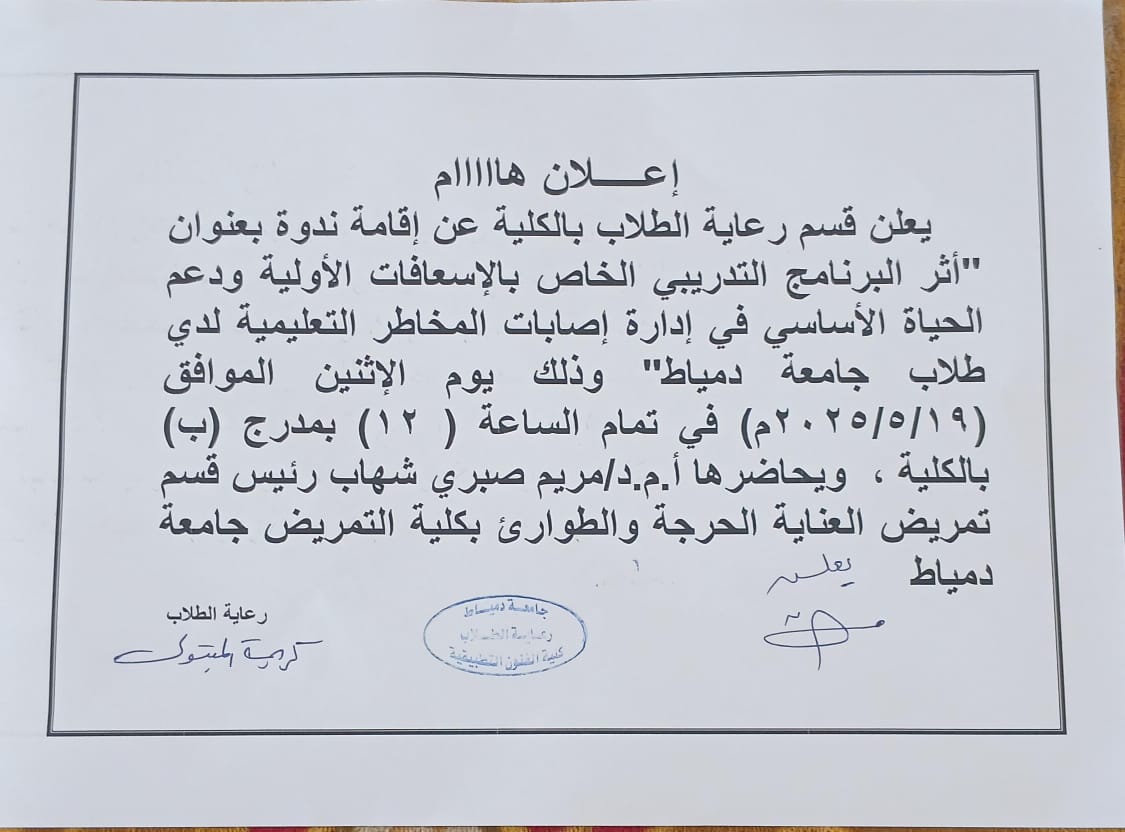 إعـــــلان هااااام
يعلن قسم رعاية الطلاب بالكلية عن إقامة ندوة بعنوان
"أثر البرنامج التدريبي الخاص بالإسعافات الأولية ودعم
الحياة الأساسي في إدارة إصابات المخاطر التعليمية لدي
طلاب جامعة دمياط" وذلك يوم الإثنين الموافق
(٢٠٢٥/٥/١٩م) في تمام الساعة ( ١٢) بمدرج (ب)
بالكلية ، ويحاضرها أ.م.د/مريم صبري شهاب رئيس قسم
تمريض العناية الحرجة والطوارئ بكلية التمريض جامعة
دمياط
يعلن
رعاية الطلاب
جامعة دمياط
رعاية الطلاب
كلية الفنون التطبيقية
كريمة